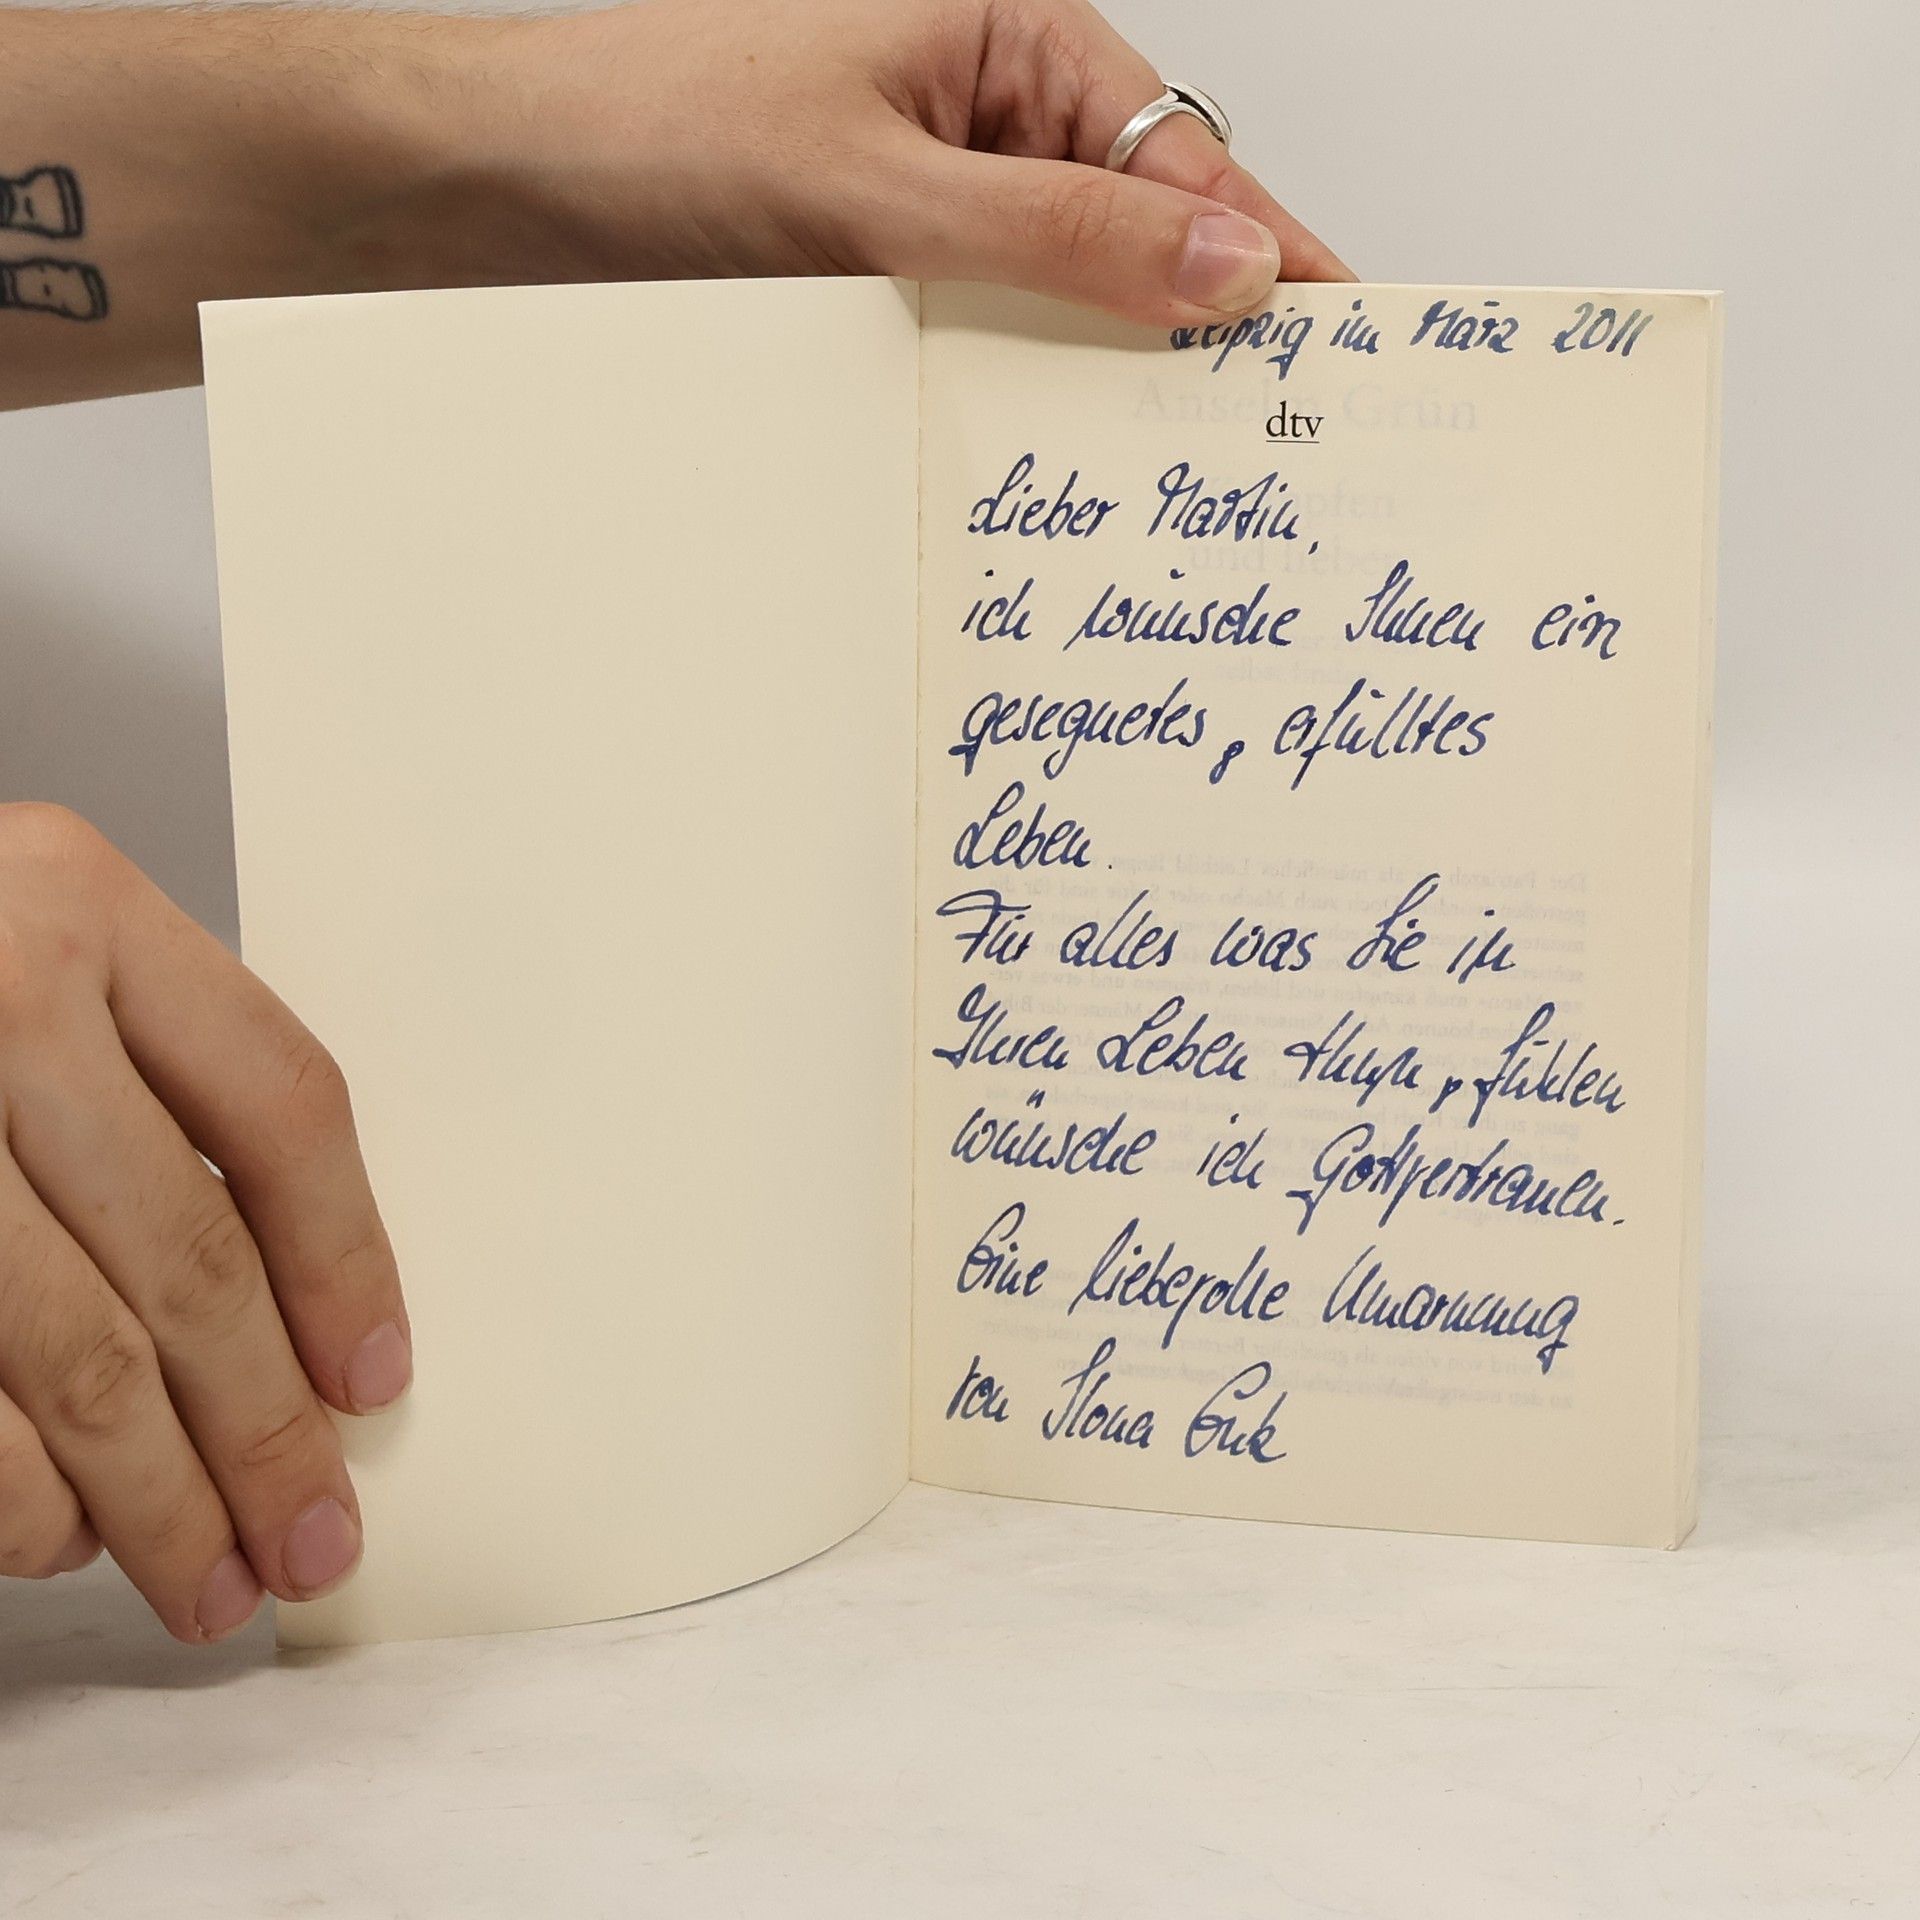 Leipzig im März 2011
dtv
Lieber Martin,
ich wünsche Ihnen ein
gesegnetes, erfülltes
Leben.
Für alles was Sie in
Ihren Leben thun, fühlen
wünsche ich Gottvertrauen.
Eine liebevolle Umarmung
von Ilona